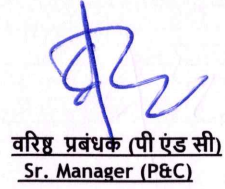 वरिष्ठ प्रबंधक (पी एंड सी)
Sr. Manager (P&C)